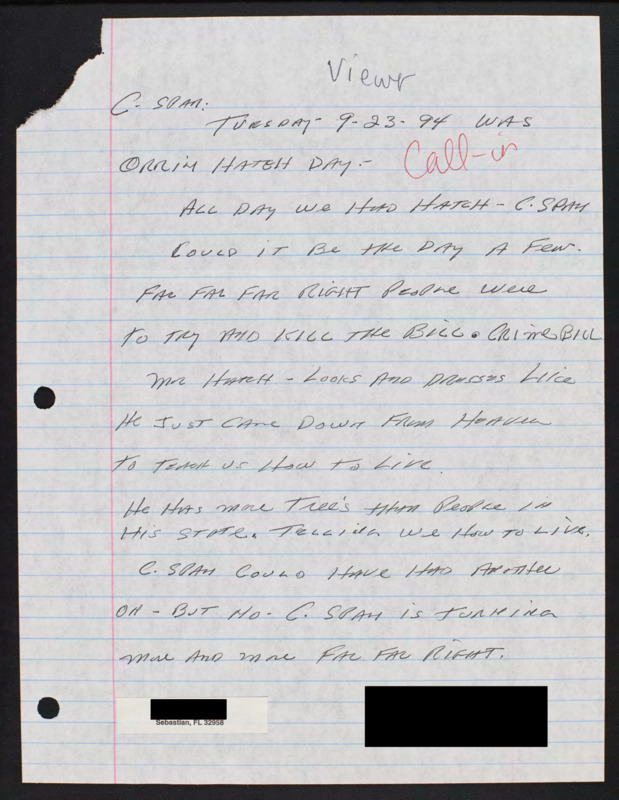 Viewr
C-SPAN:
TUESDAY- 9-23-94 WAS
ORRIN HATCH DAY.-
Call-in
ALL DAY WE HAD HATCH - C.SPAN
COULD IT BE THE DAY A FEW.
FAR FAR FAR RIGHT PEOPLE WERE
TO TRY AND KILL THE BILL. CRIME BILL
MR HATCH - LOOKS AND DRESSES LIKE
HE JUST CAME DOWN FROM HEAVEN
TO TEACH US HOW TO LIVE.
HE HAS MORE TREE'S THAN PEOPLE IN
HIS STATE. TELLING WE HOW TO LIVE.
C.SPAN COULD HAVE HAD ANOTHER
ON - BUT NO - C.SPAN IS TURNING
MORE AND MORE FAR FAR RIGHT.
Sebastian, FL 32958